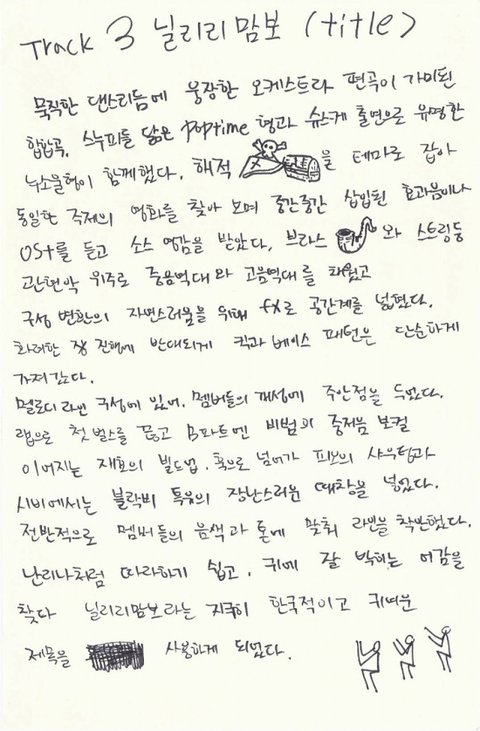 Track 3 닐리리맘보 (title)
묵직한 댄스리듬에 웅장한 오케스트라 편곡이 가미된
힙합곡. 스눕피를 닮은 poptime 형과 슈스케 출연으로 유명한
뇌소울형이 함께했다. 해적 을 테마로 잡아
동일한 주제의 영화를 찾아 보며 중간중간 삽입된 효과음이나
OST를 듣고 소스 영감을 받았다. 브라스 와 스트링등
관현악 위주로 중음역대와 고음역대를 채웠고
구성 변환의 자연스러움을 위해 fx로 공간계를 넓혔다.
화려한 곡 진행에 반대되게 킥과 베이스 패턴은 단순하게
가져갔다.
멜로디 라인 구성에 있어, 멤버들의 개성에 주안점을 두었다.
랩으로 첫 벌스를 끊고 B파트엔 비범의 중저음 보컬
이어지는 재효의 빌드업. 훅으로 넘어가 피오의 샤우팅과
시비에서는 블락비 특유의 장난스러운 떼창을 넣었다.
전반적으로 멤버들의 음색과 톤에 맞춰 라인을 착안했다.
난리나처럼 따라하기 쉽고, 귀에 잘 박히는 어감을
찾다 닐리리맘보라는 지극히 한국적이고 귀여운
제목을 사용하게 되었다.